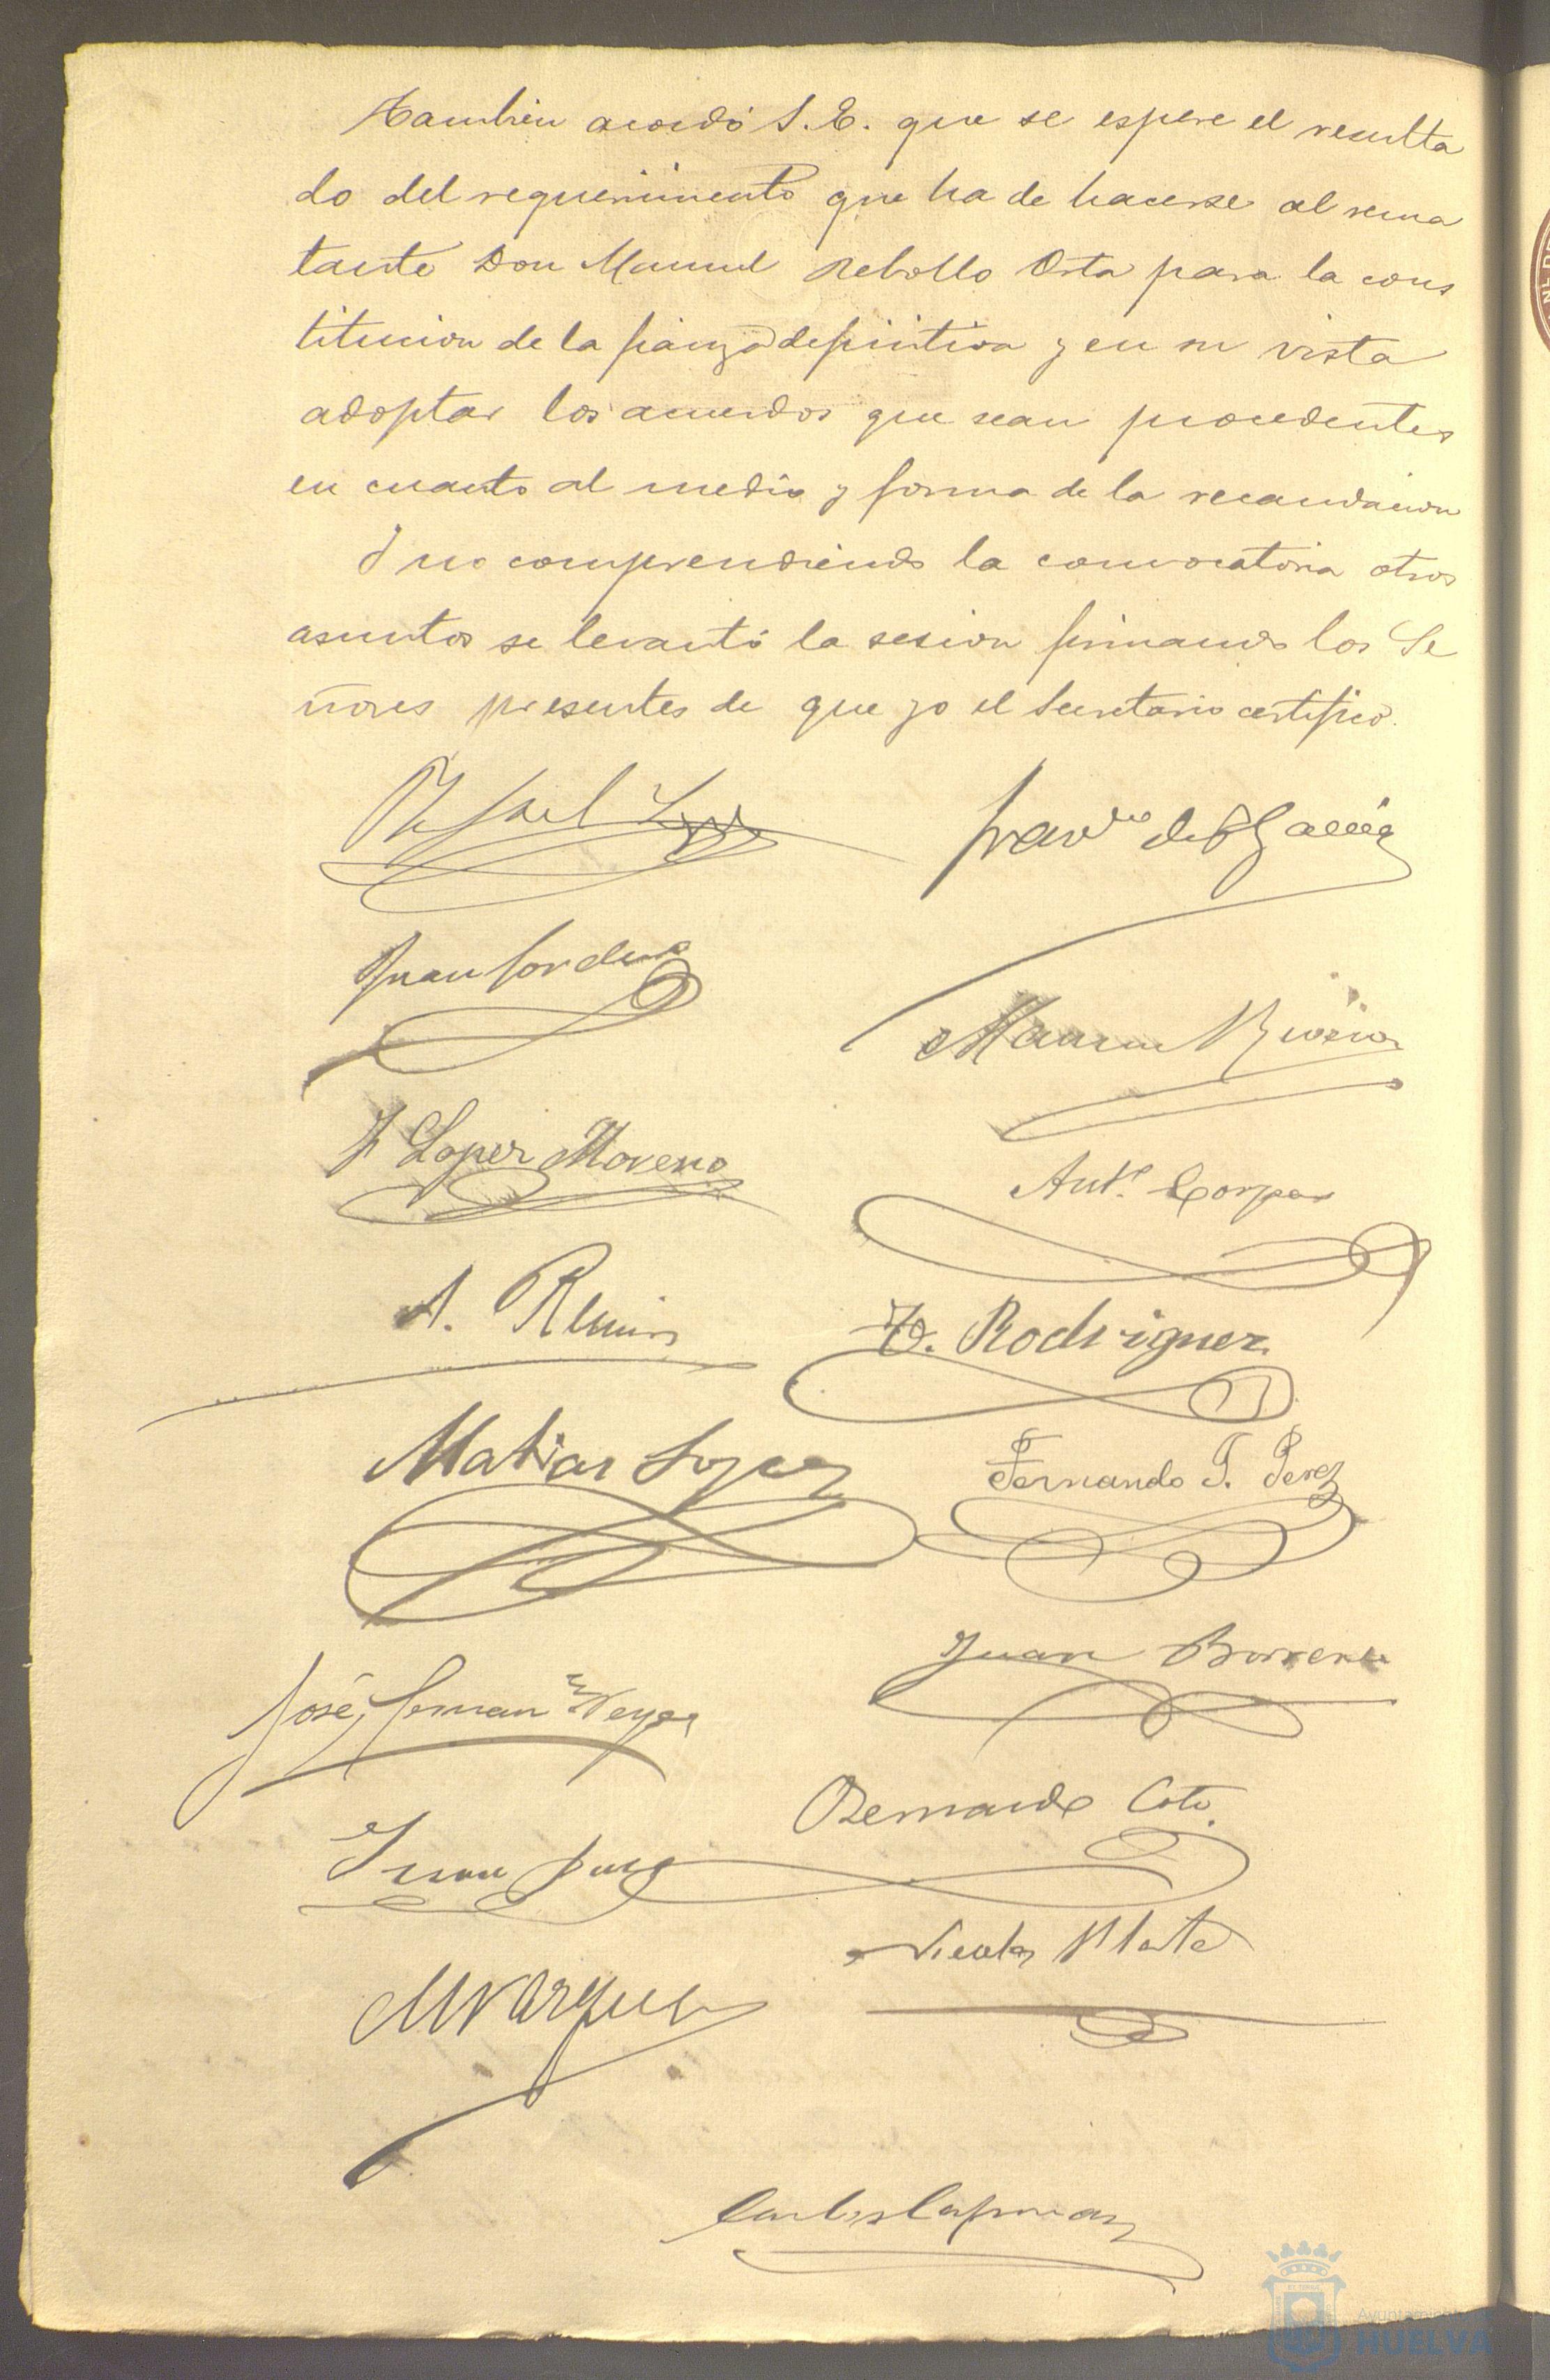 Tambien acordó S.E. que se espere el resulta
do del requerimiento que ha de hacerse al rema
tante Don Manuel Rebollo Orta para la cons
titucion de la fianza definitiva y en su vista
adoptar los acuerdos que sean procedentes
en cuanto al medio y forma de la recaudacion
Y no comprendiendo la convocatoria otros
asuntos se levantó la sesion firmando los Se
ñores presentes de que yo el Secretario certifico.
Rafael
Franco de P García
Juan
J Lopez Moreno
Anto. Corpas
A.
Rodriguez
Matias Lopez
Fernando T. Perez
Juan Borrero
José
Bernardo Coto.
Juan
Nicolas
M Vazquez
Carlos
Ayuntamiento
HUELVA